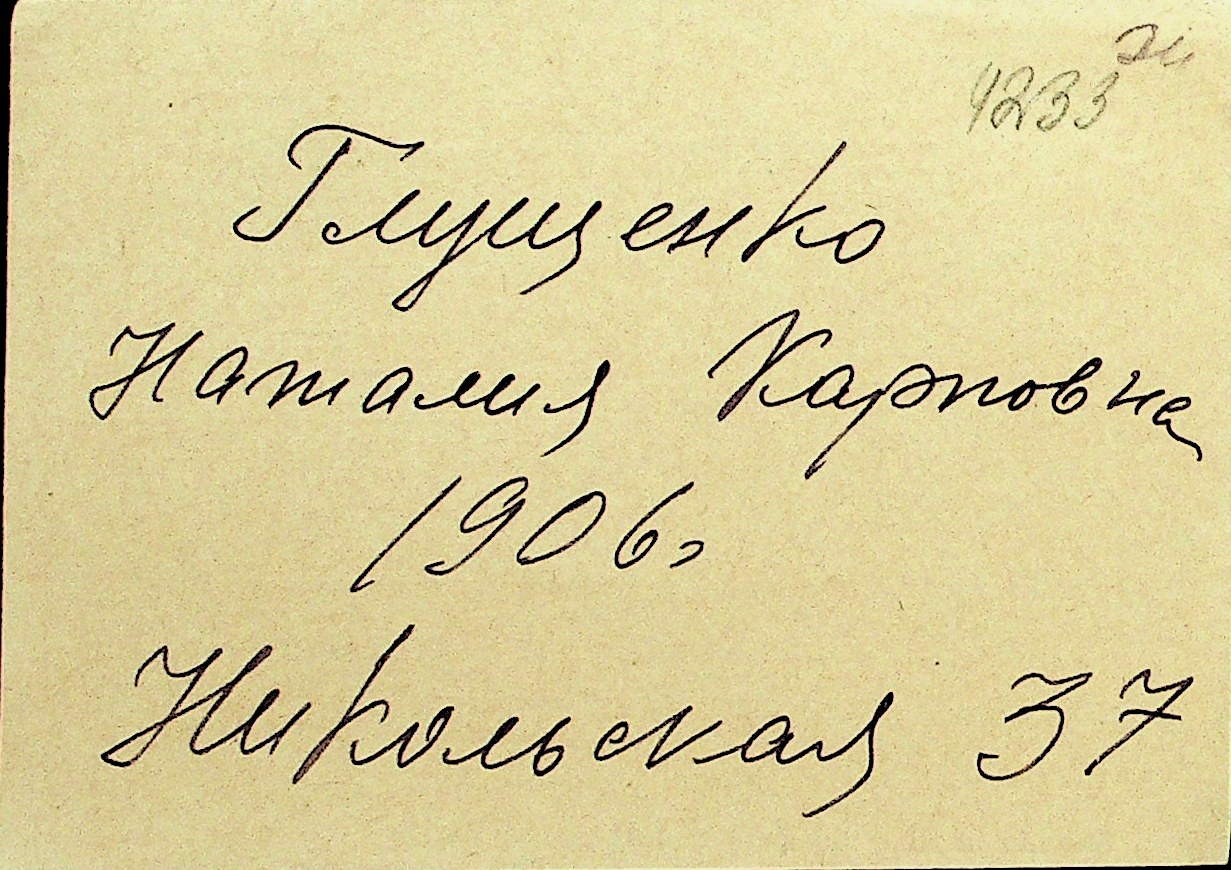 4233
Глущенко
Наталия Карповна
1906г
Никольская 37